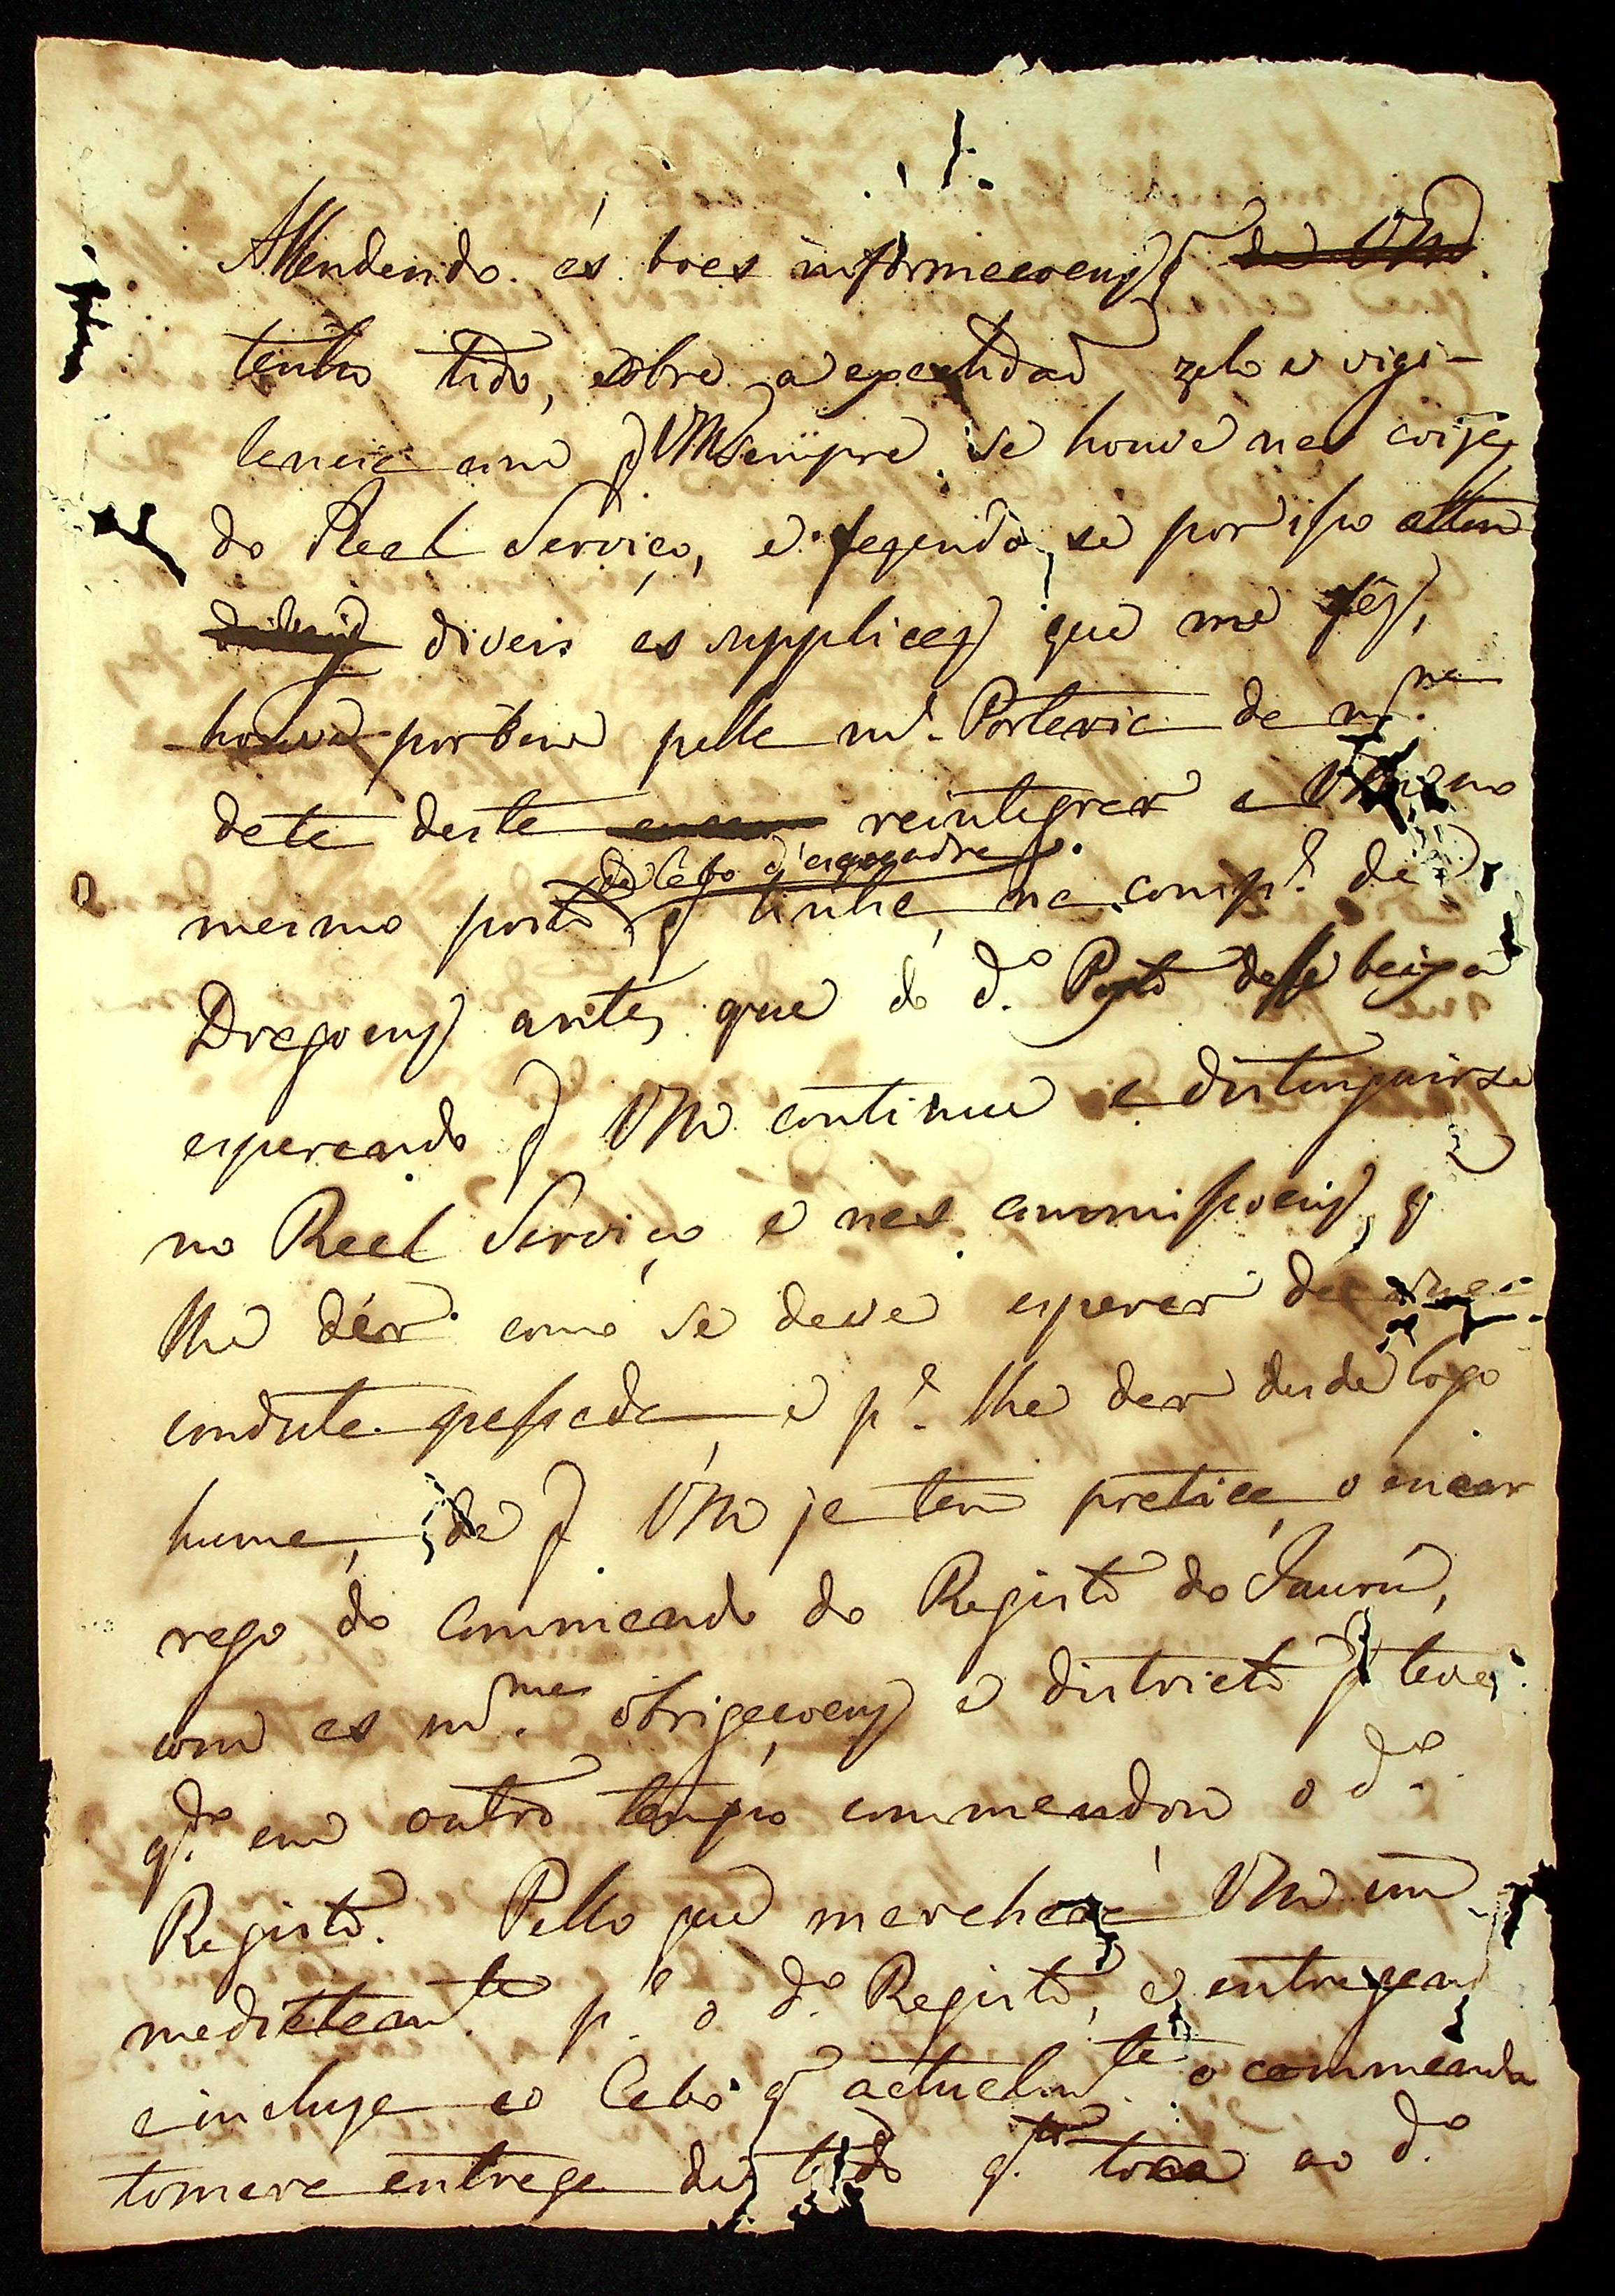 Attendendo ás boas informaçoens q̃ de VM.
tenho tido, sobre a exactidaõ zelo e vigi-
lancia com q̃ VM sempre se houve nas coizas
do Real Serviço, e fazendo se por isso atten
diveis as supplicas que me fes,
houve por bem pella m.ª Portaria da m.ma
data desta reintegrar a VM no
de Cabo d'esquadra
mesmo posto q̃ tinha na comp.ª de
Dragoens antes que do d.º Posto desse baixa
esperando q̃ VM continue a distinguirse
no Real Serviço e nas commissoens q̃
lhe dér como se deve esperar da sua
conduta passada e p.ª lhe dar desde logo
huma, de q̃ VM ja tem pratica, o encar
rego do Commando do Registo do Jaurú,
com as m.mas obrigaçoens e districto q̃ teve
q.do em outro tempo commandou o d.º
Registo. Pello que marchará VM im
mediatam.te p.ª o d.º Registo, e entregand
a incluza ao Cabo q̃ actualm.te o commanda
tomara entrega de tudo q.to toca ao d.º